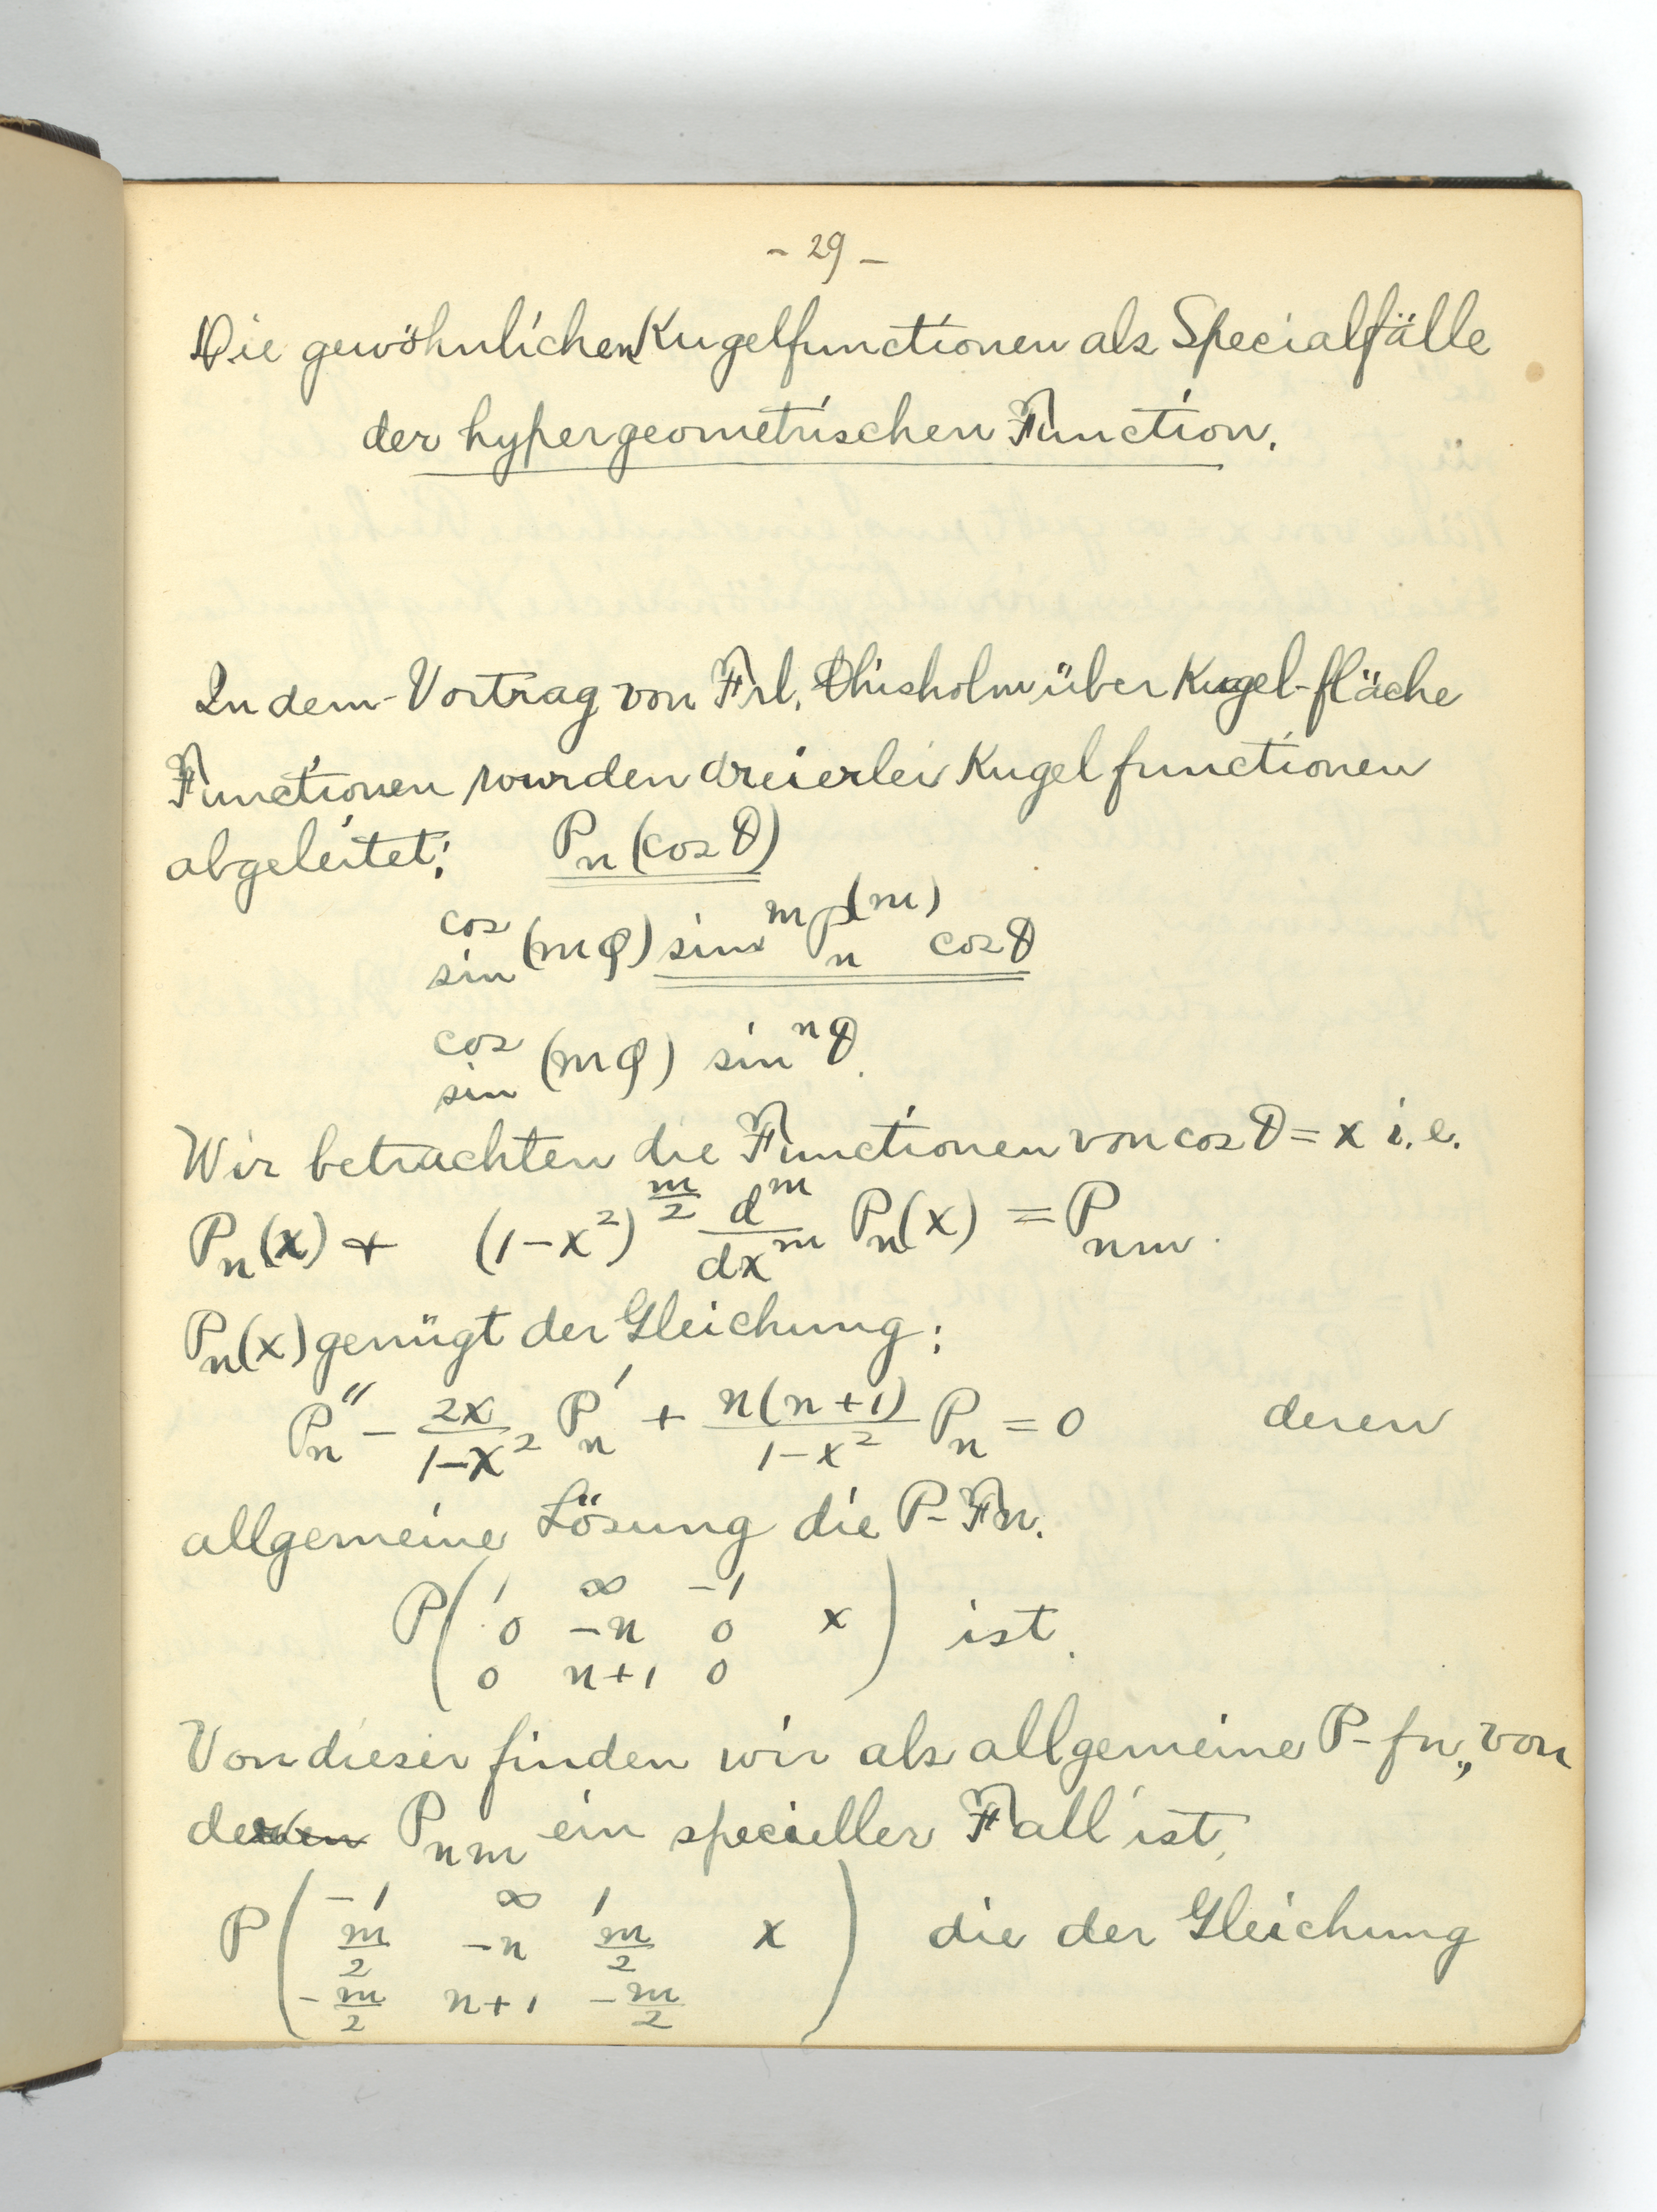 - 29 -
Die gewöhnlichen Kugelfunctionen als Specialfälle
der hypergeometrischen Function.
In dem Vortrag von Frl. Chisholm über Kugel-fläche
Functionen wurden dreierlei Kugelfunctionen
abgeleitet: P_n (cos θ)
cos/sin (mφ) sin^m P_n^(m) cos θ
cos/sin (mφ) sin^n θ.
Wir betrachten die Functionen von cos θ = x i.e.
P_n(x) + (1-x²)^(m/2) d^m/dx^m P_n(x) = P_nm.
P_n(x) genügt der Gleichung:
P_n'' - 2x/(1-x²) P_n' + n(n+1)/(1-x²) P_n = 0 deren
allgemeine Lösung die P-Fn.
P( 1 ∞ -1
0 -n 0 x ) ist.
0 n+1 0
Von dieser finden wir als allgemeine P-fn., von
der P_nm ein specieller Fall ist,
P( -1 ∞ 1
m/2 -n m/2 x ) die der Gleichung
-m/2 n+1 -m/2